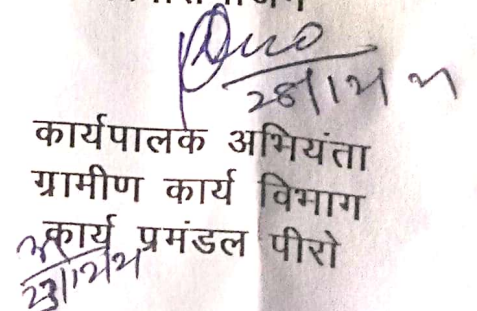 28/12/21
कार्यपालक अभियंता
ग्रामीण कार्य विभाग
कार्य प्रमंडल पीरो
23/12/21